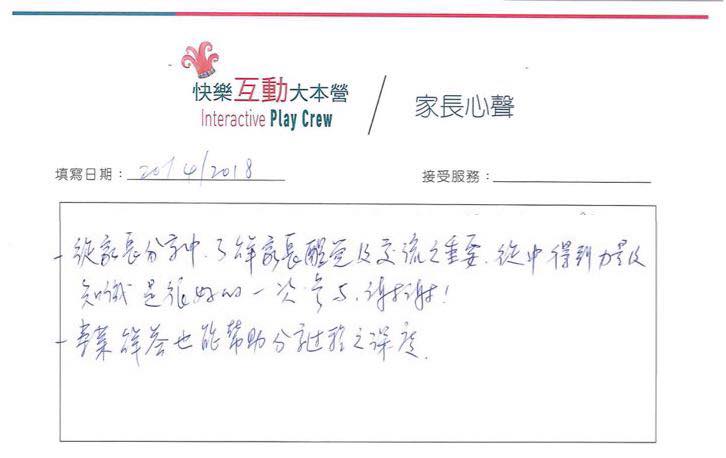 快樂互動大本營
Interactive Play Crew
家長心聲
填寫日期：20/4/2018
接受服務：
- 從家長分享中，了解家長醒覺及交流之重要，從中得到力量及
知識是很好的一次參與，謝謝！
- 專業解答也能幫助分享過程之深度。